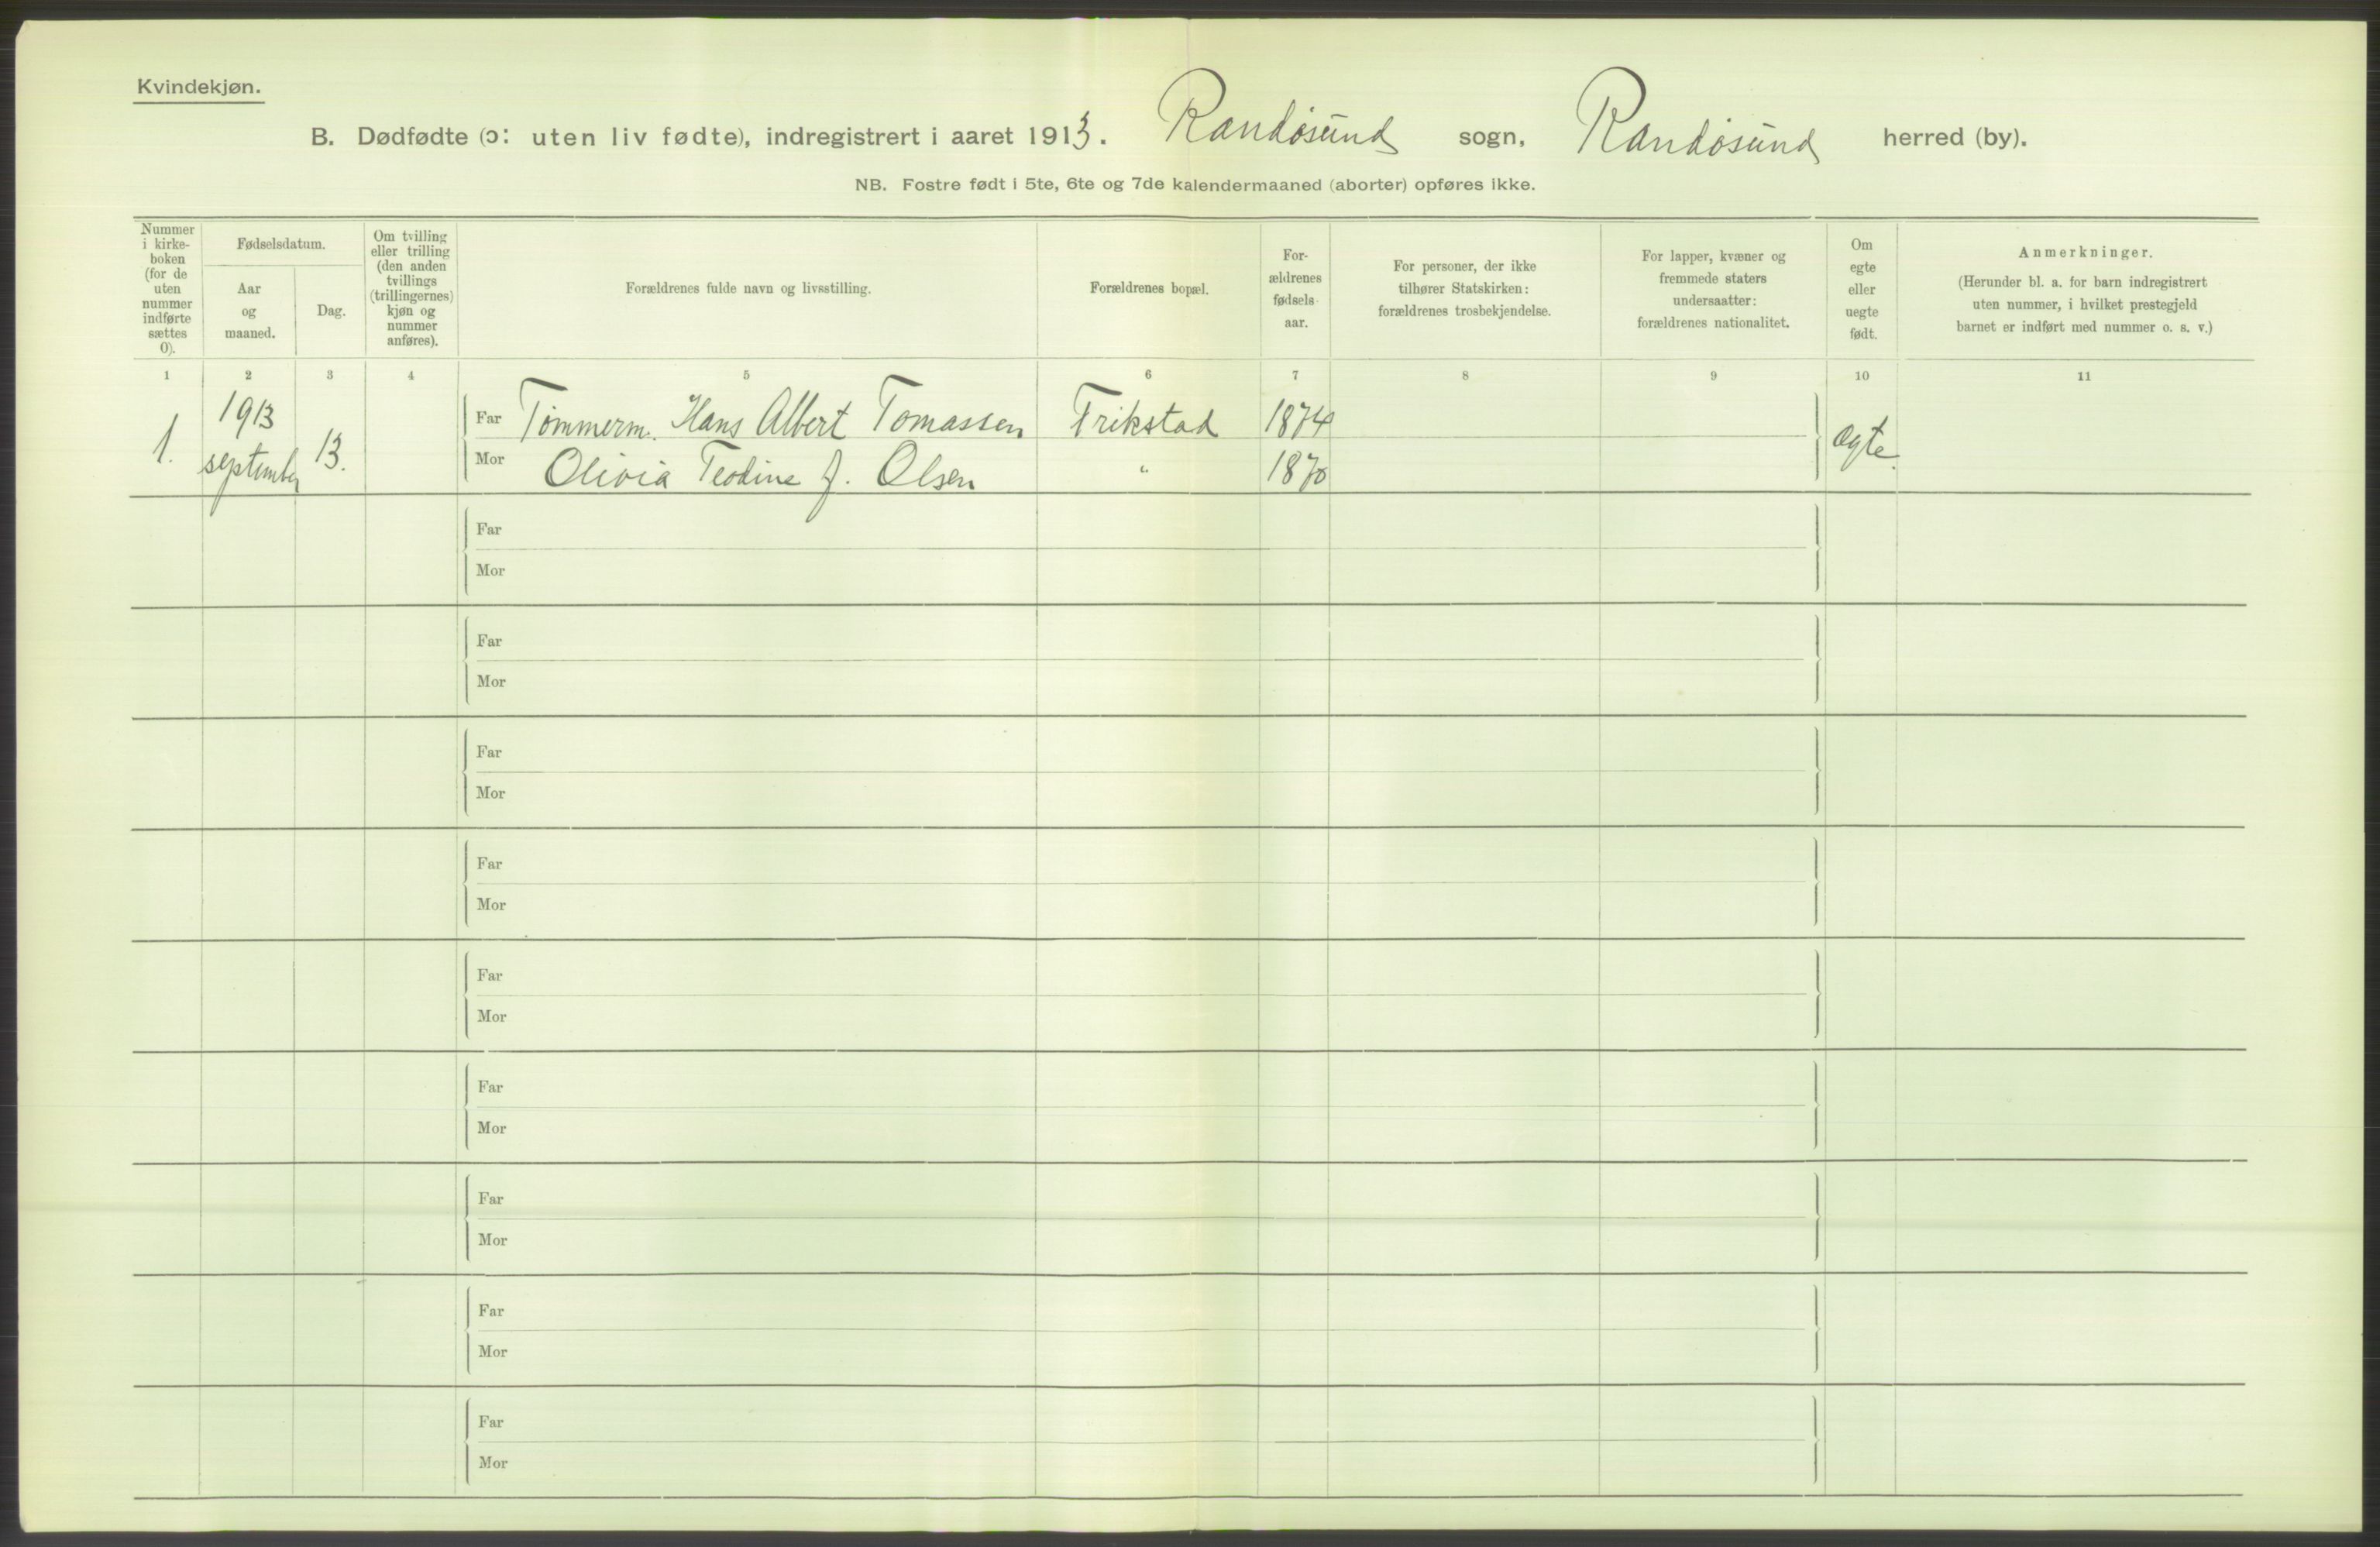 Kvindekjøn.
B. Dødfødte (ɔ: uten liv fødte), indregistrert i aaret 1913. Randøsund sogn, Randøsund herred (by).
NB. Fostre født i 5te, 6te og 7de kalendermaaned (aborter) opføres ikke.
Nummer
i kirke-
boken
(for de
uten
nummer
indførte
sættes
0).
Fødselsdatum.
Aar
og
maaned.
Dag.
Om tvilling
eller trilling
(den anden
tvillings
(trillingernes)
kjøn og
nummer
anføres).
Forældrenes fulde navn og livsstilling.
Forældrenes bopæl.
For-
ældrenes
fødsels-
aar.
For personer, der ikke
tilhører Statskirken:
forældrenes trosbekjendelse.
For lapper, kvæner og
fremmede staters
undersaatter:
forældrenes nationalitet.
Om
egte
eller
uegte
født.
Anmerkninger.
(Herunder bl. a. for barn indregistrert
uten nummer, i hvilket prestegjeld
barnet er indført med nummer o. s. v.)
1 2 3 4 5 6 7 8 9 10 11
1. 1913 september 13.
Far Tømmerm. Hans Albert Tomassen Frikstad 1874 egte.
Mor Olivia Teodine f. Olsen " 1870
Far
Mor
Far
Mor
Far
Mor
Far
Mor
Far
Mor
Far
Mor
Far
Mor
Far
Mor
Far
Mor